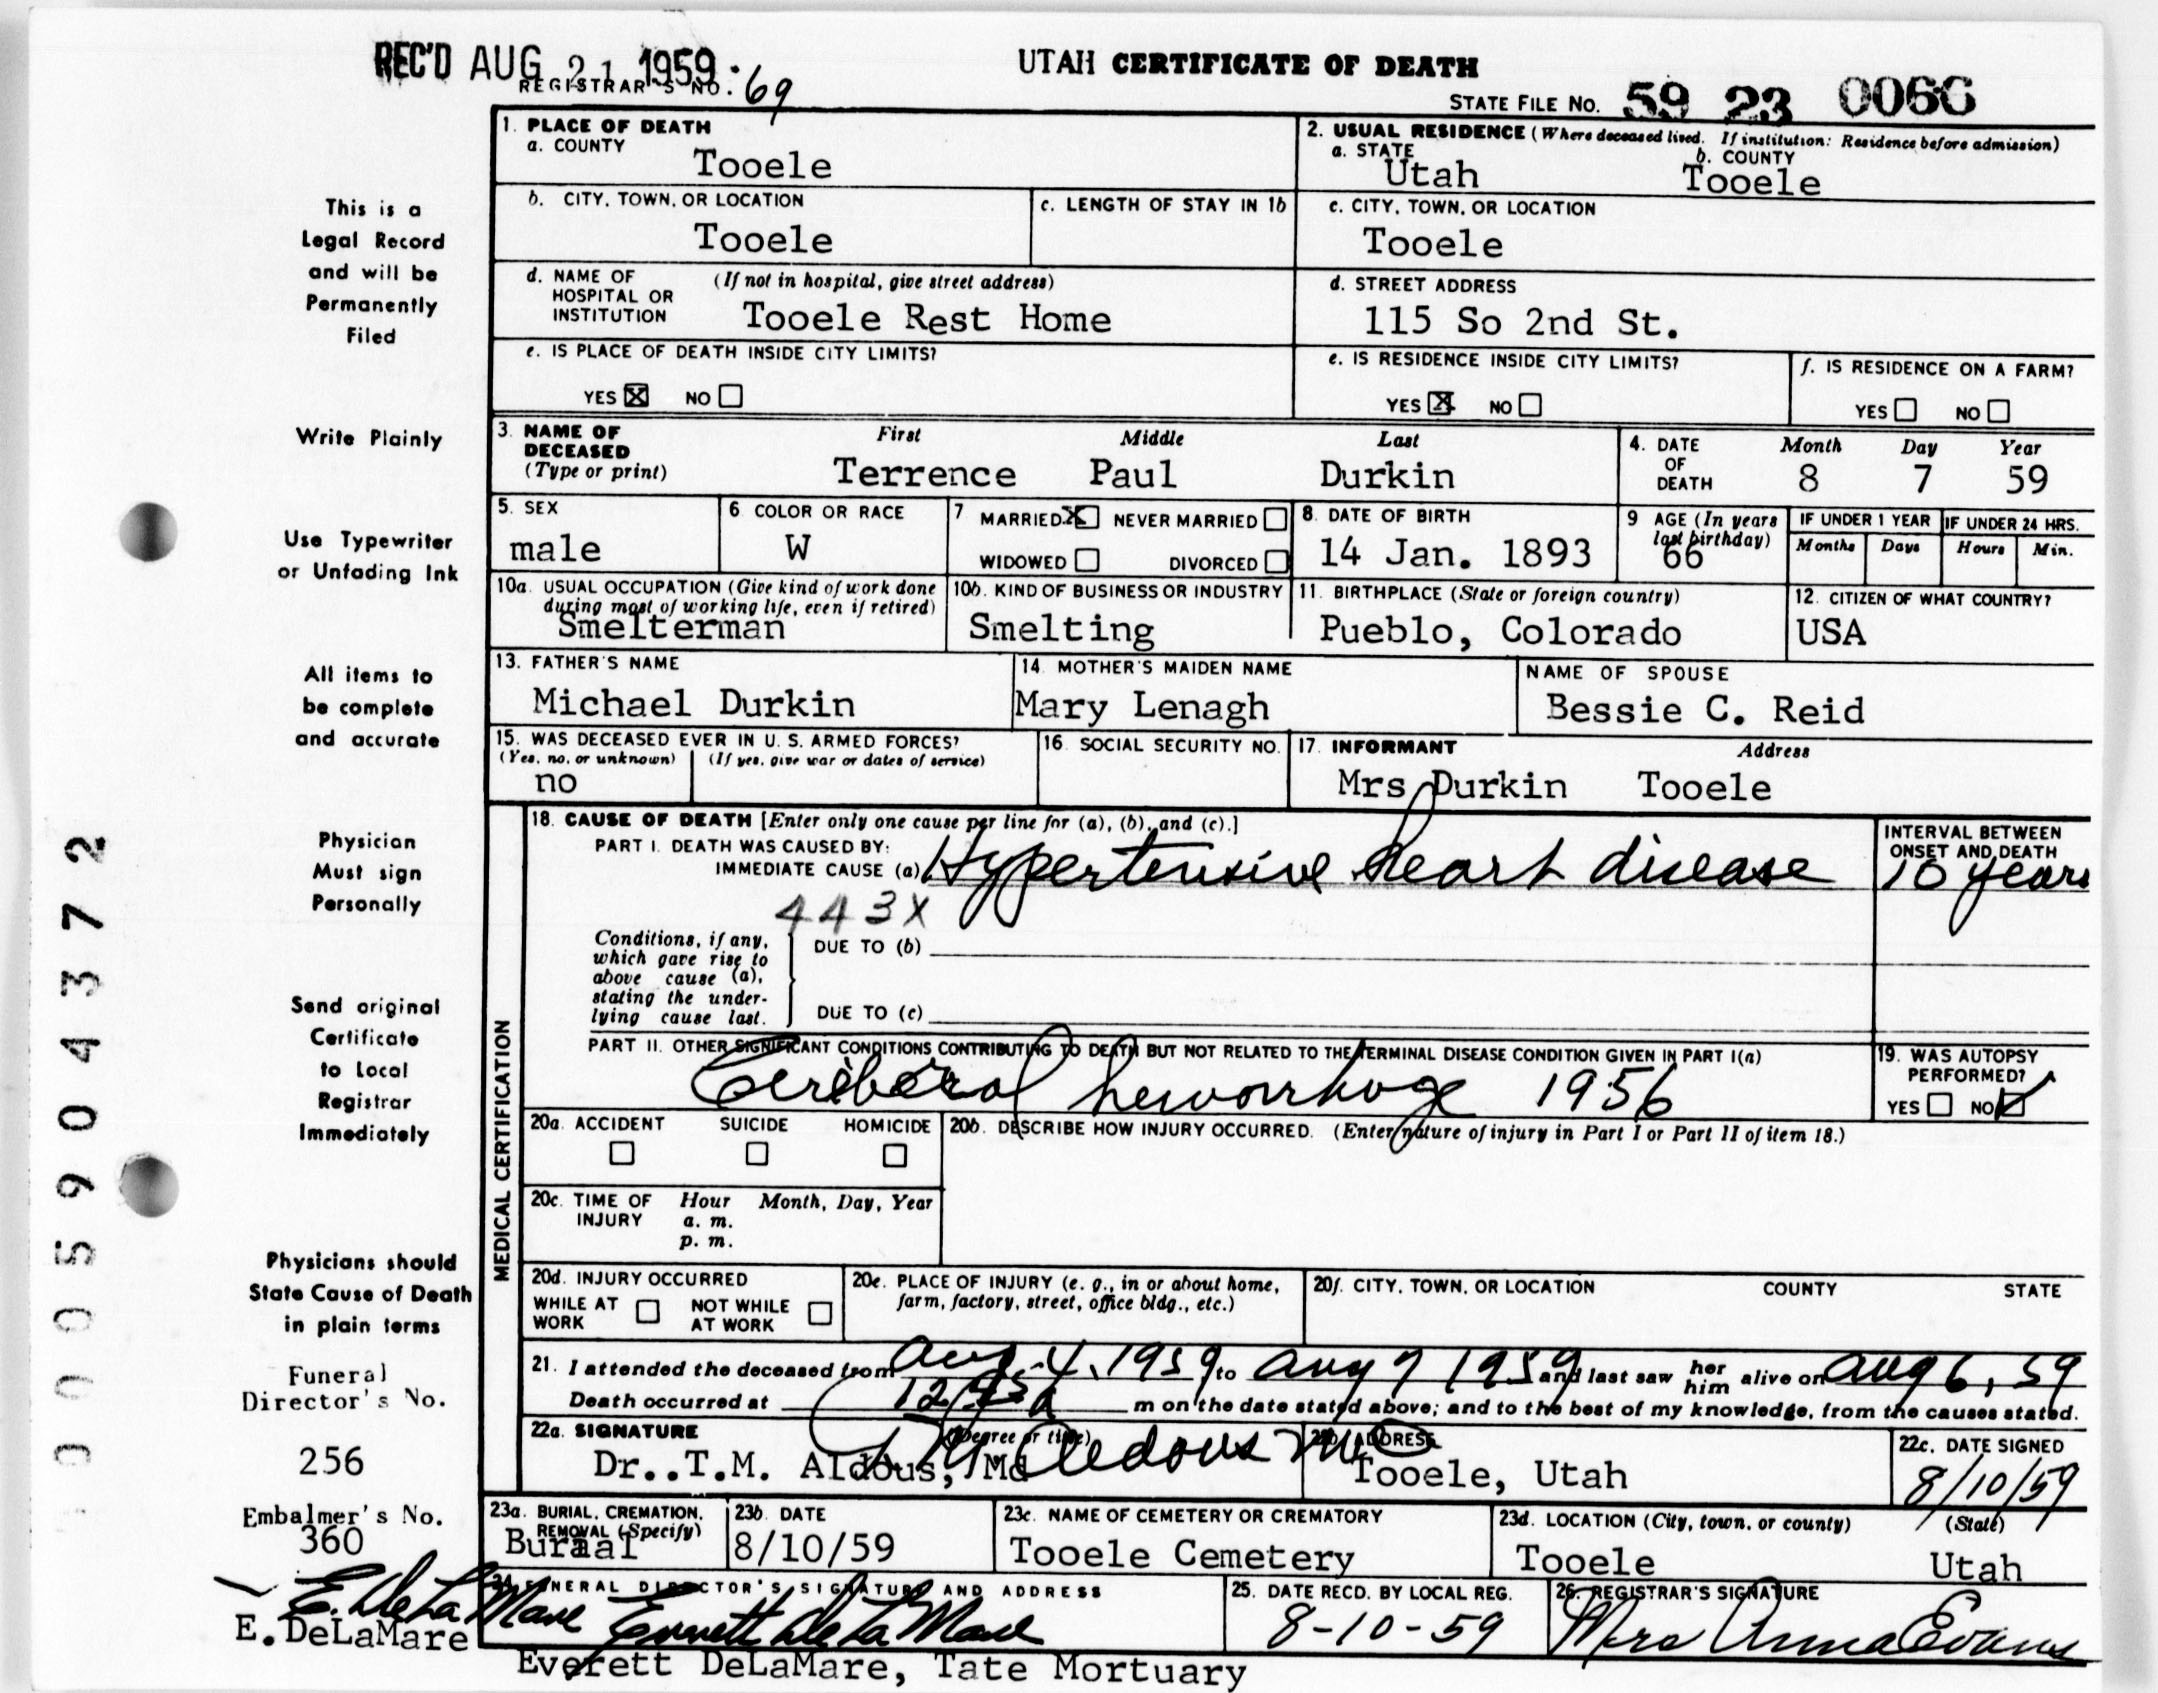 REC'D AUG 21 1959
REGISTRAR'S NO. 69
UTAH CERTIFICATE OF DEATH
STATE FILE NO. 59 23 0066
1. PLACE OF DEATH
a. COUNTY
Tooele
2. USUAL RESIDENCE (Where deceased lived. If institution: Residence before admission)
a. STATE
Utah
b. COUNTY
Tooele
b. CITY, TOWN, OR LOCATION
Tooele
c. LENGTH OF STAY IN 1b
c. CITY, TOWN, OR LOCATION
Tooele
d. NAME OF HOSPITAL OR INSTITUTION
(If not in hospital, give street address)
Tooele Rest Home
d. STREET ADDRESS
115 So 2nd St.
e. IS PLACE OF DEATH INSIDE CITY LIMITS?
YES X NO
e. IS RESIDENCE INSIDE CITY LIMITS?
YES X NO
f. IS RESIDENCE ON A FARM?
YES NO
3. NAME OF DECEASED
(Type or print)
First Middle Last
Terrence Paul Durkin
4. DATE OF DEATH
Month Day Year
8 7 59
5. SEX
male
6 COLOR OR RACE
W
7 MARRIED X NEVER MARRIED
WIDOWED DIVORCED
8. DATE OF BIRTH
14 Jan. 1893
9 AGE (In years last birthday)
66
IF UNDER 1 YEAR
Months Days
IF UNDER 24 HRS.
Hours Min.
10a. USUAL OCCUPATION (Give kind of work done during most of working life, even if retired)
Smelterman
10b. KIND OF BUSINESS OR INDUSTRY
Smelting
11. BIRTHPLACE (State or foreign country)
Pueblo, Colorado
12. CITIZEN OF WHAT COUNTRY?
USA
13. FATHER'S NAME
Michael Durkin
14. MOTHER'S MAIDEN NAME
Mary Lenagh
NAME OF SPOUSE
Bessie C. Reid
15. WAS DECEASED EVER IN U. S. ARMED FORCES?
(Yes, no, or unknown) (If yes, give war or dates of service)
no
16. SOCIAL SECURITY NO.
17. INFORMANT Address
Mrs Durkin Tooele
MEDICAL CERTIFICATION
18. CAUSE OF DEATH [Enter only one cause per line for (a), (b), and (c).]
PART I. DEATH WAS CAUSED BY:
IMMEDIATE CAUSE (a) Hypertensive heart disease
INTERVAL BETWEEN ONSET AND DEATH
10 years
443X
Conditions, if any, which gave rise to above cause (a), stating the underlying cause last.
DUE TO (b)
DUE TO (c)
PART II. OTHER SIGNIFICANT CONDITIONS CONTRIBUTING TO DEATH BUT NOT RELATED TO THE TERMINAL DISEASE CONDITION GIVEN IN PART I(a)
Cerebral hemorrhage 1956
19. WAS AUTOPSY PERFORMED?
YES NO
20a. ACCIDENT SUICIDE HOMICIDE
20b. DESCRIBE HOW INJURY OCCURRED. (Enter nature of injury in Part I or Part II of item 18.)
20c. TIME OF INJURY
Hour Month, Day, Year
a. m.
p. m.
20d. INJURY OCCURRED
WHILE AT WORK NOT WHILE AT WORK
20e. PLACE OF INJURY (e. g., in or about home, farm, factory, street, office bldg., etc.)
20f. CITY, TOWN, OR LOCATION COUNTY STATE
21. I attended the deceased from Aug 4, 1959 to Aug 7 1959 and last saw her him alive on Aug 6, 59
Death occurred at 12:45 a m on the date stated above; and to the best of my knowledge, from the causes stated.
22a. SIGNATURE (Degree or title)
Dr..T.M. Aldous, Md
T M Aldous MD
22b. ADDRESS
Tooele, Utah
22c. DATE SIGNED
8/10/59
23a. BURIAL, CREMATION, REMOVAL (Specify)
Burial
23b. DATE
8/10/59
23c. NAME OF CEMETERY OR CREMATORY
Tooele Cemetery
23d. LOCATION (City, town, or county) (State)
Tooele Utah
24 FUNERAL DIRECTOR'S SIGNATURE AND ADDRESS
Everett DeLaMare
Everett DeLaMare, Tate Mortuary
25. DATE RECD. BY LOCAL REG.
8-10-59
26. REGISTRAR'S SIGNATURE
Mrs Anna Evans
This is a
Legal Record
and will be
Permanently
Filed
Write Plainly
Use Typewriter
or Unfading Ink
All items to
be complete
and accurate
Physician
Must sign
Personally
Send original
Certificate
to Local
Registrar
Immediately
Physicians should
State Cause of Death
in plain terms
Funeral
Director's No.
256
Embalmer's No.
360
E. DeLaMare
E. DeLaMare
0005904372